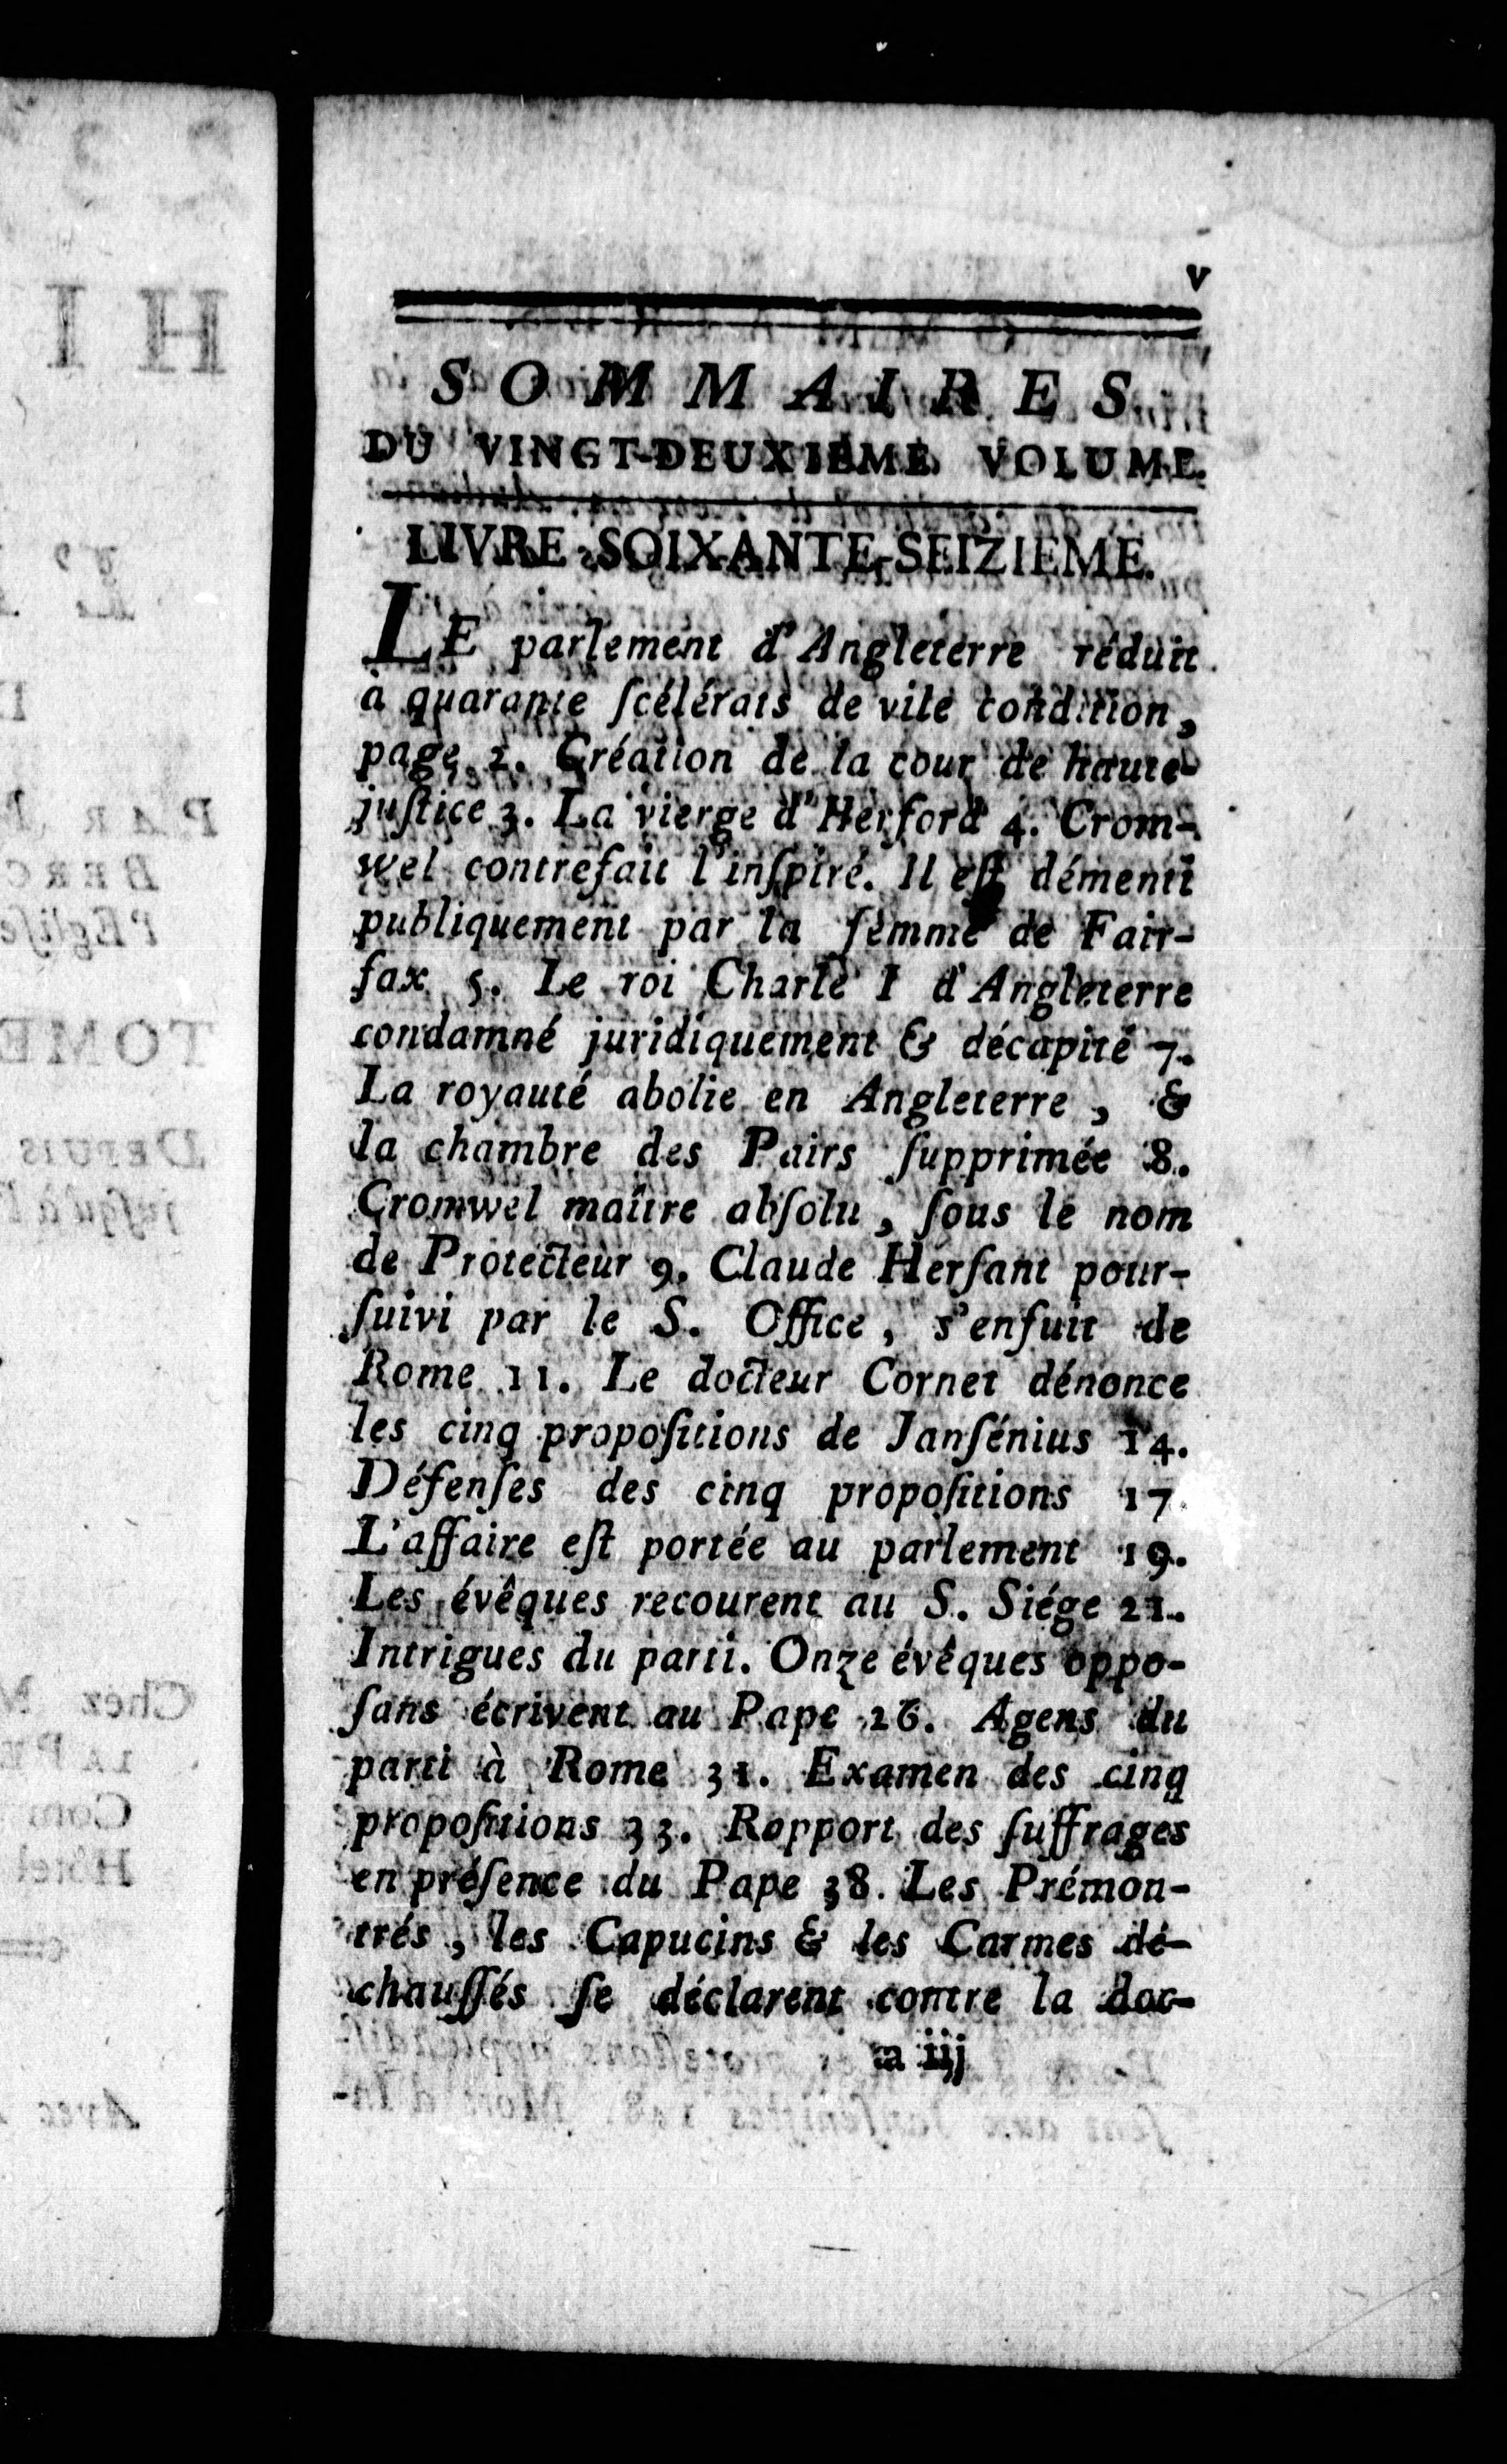 v
SOMMAIRES
DU VINGT-DEUXIEME VOLUME.
LIVRE SOIXANTE-SEIZIEME.
LE parlement d'Angleterre réduit
à quarante ſcélérats de vile condition,
page 2. Création de la cour de haute-
juſtice 3. La vierge d'Herford 4. Crom-
wel contrefait l'inſpiré. Il eſt démenti
publiquement par la femme de Fair-
fax 5. Le roi Charle I d'Angleterre
condamné juridiquement & décapité 7.
La royauté abolie en Angleterre, &
la chambre des Pairs ſupprimée 8.
Cromwel maître abſolu, ſous le nom
de Protecteur 9. Claude Herſant pour-
ſuivi par le S. Office, s'enfuit de
Rome 11. Le docteur Cornet dénonce
les cinq propoſitions de Janſénius 14.
Défenſes des cinq propoſitions 17.
L'affaire eſt portée au parlement 19.
Les évêques recourent au S. Siége 21.
Intrigues du parti. Onze évêques oppo-
ſans écrivent au Pape 26. Agens du
parti à Rome 31. Examen des cinq
propoſitions 33. Rapport des ſuffrages
en préſence du Pape 38. Les Prémon-
trés, les Capucins & les Carmes dé-
chauſſés ſe déclarent contre la doc-
a iij